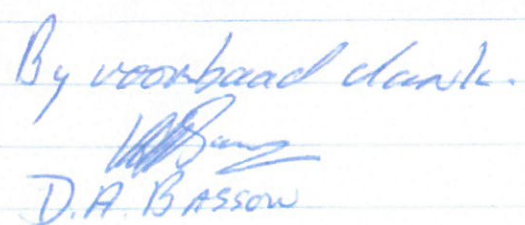 By voorbaad dank.
D.A. BASSON